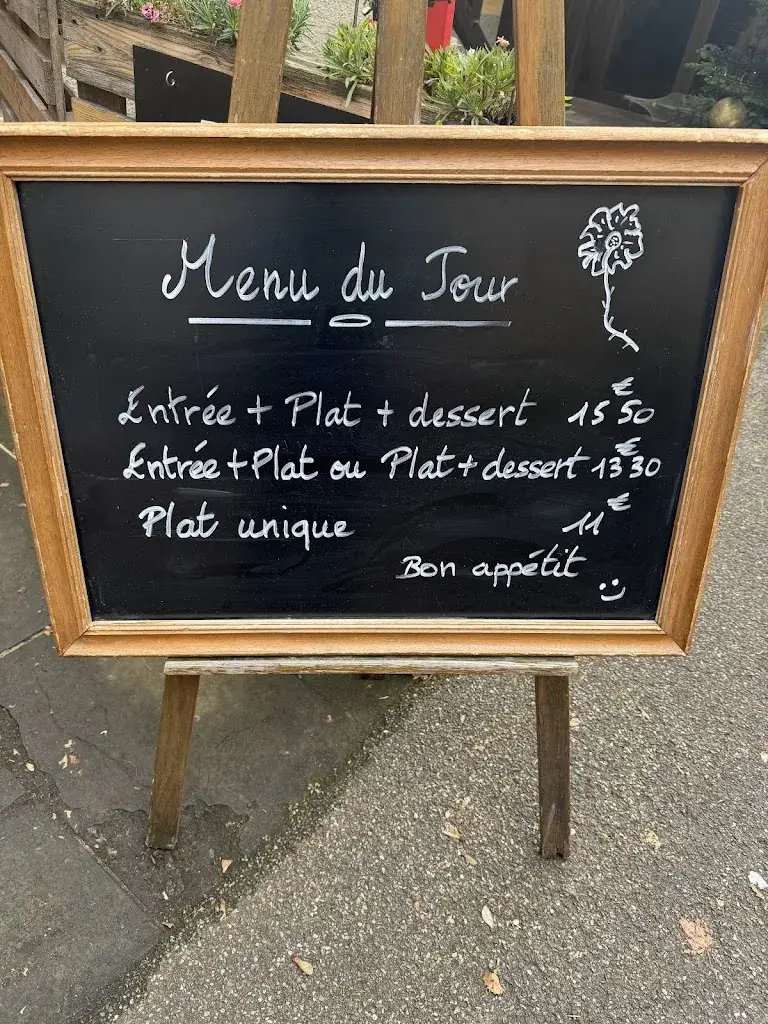 Menu du Jour
Entrée + Plat + dessert 15€50
Entrée + Plat ou Plat + dessert 13€30
Plat unique 11€
Bon appétit